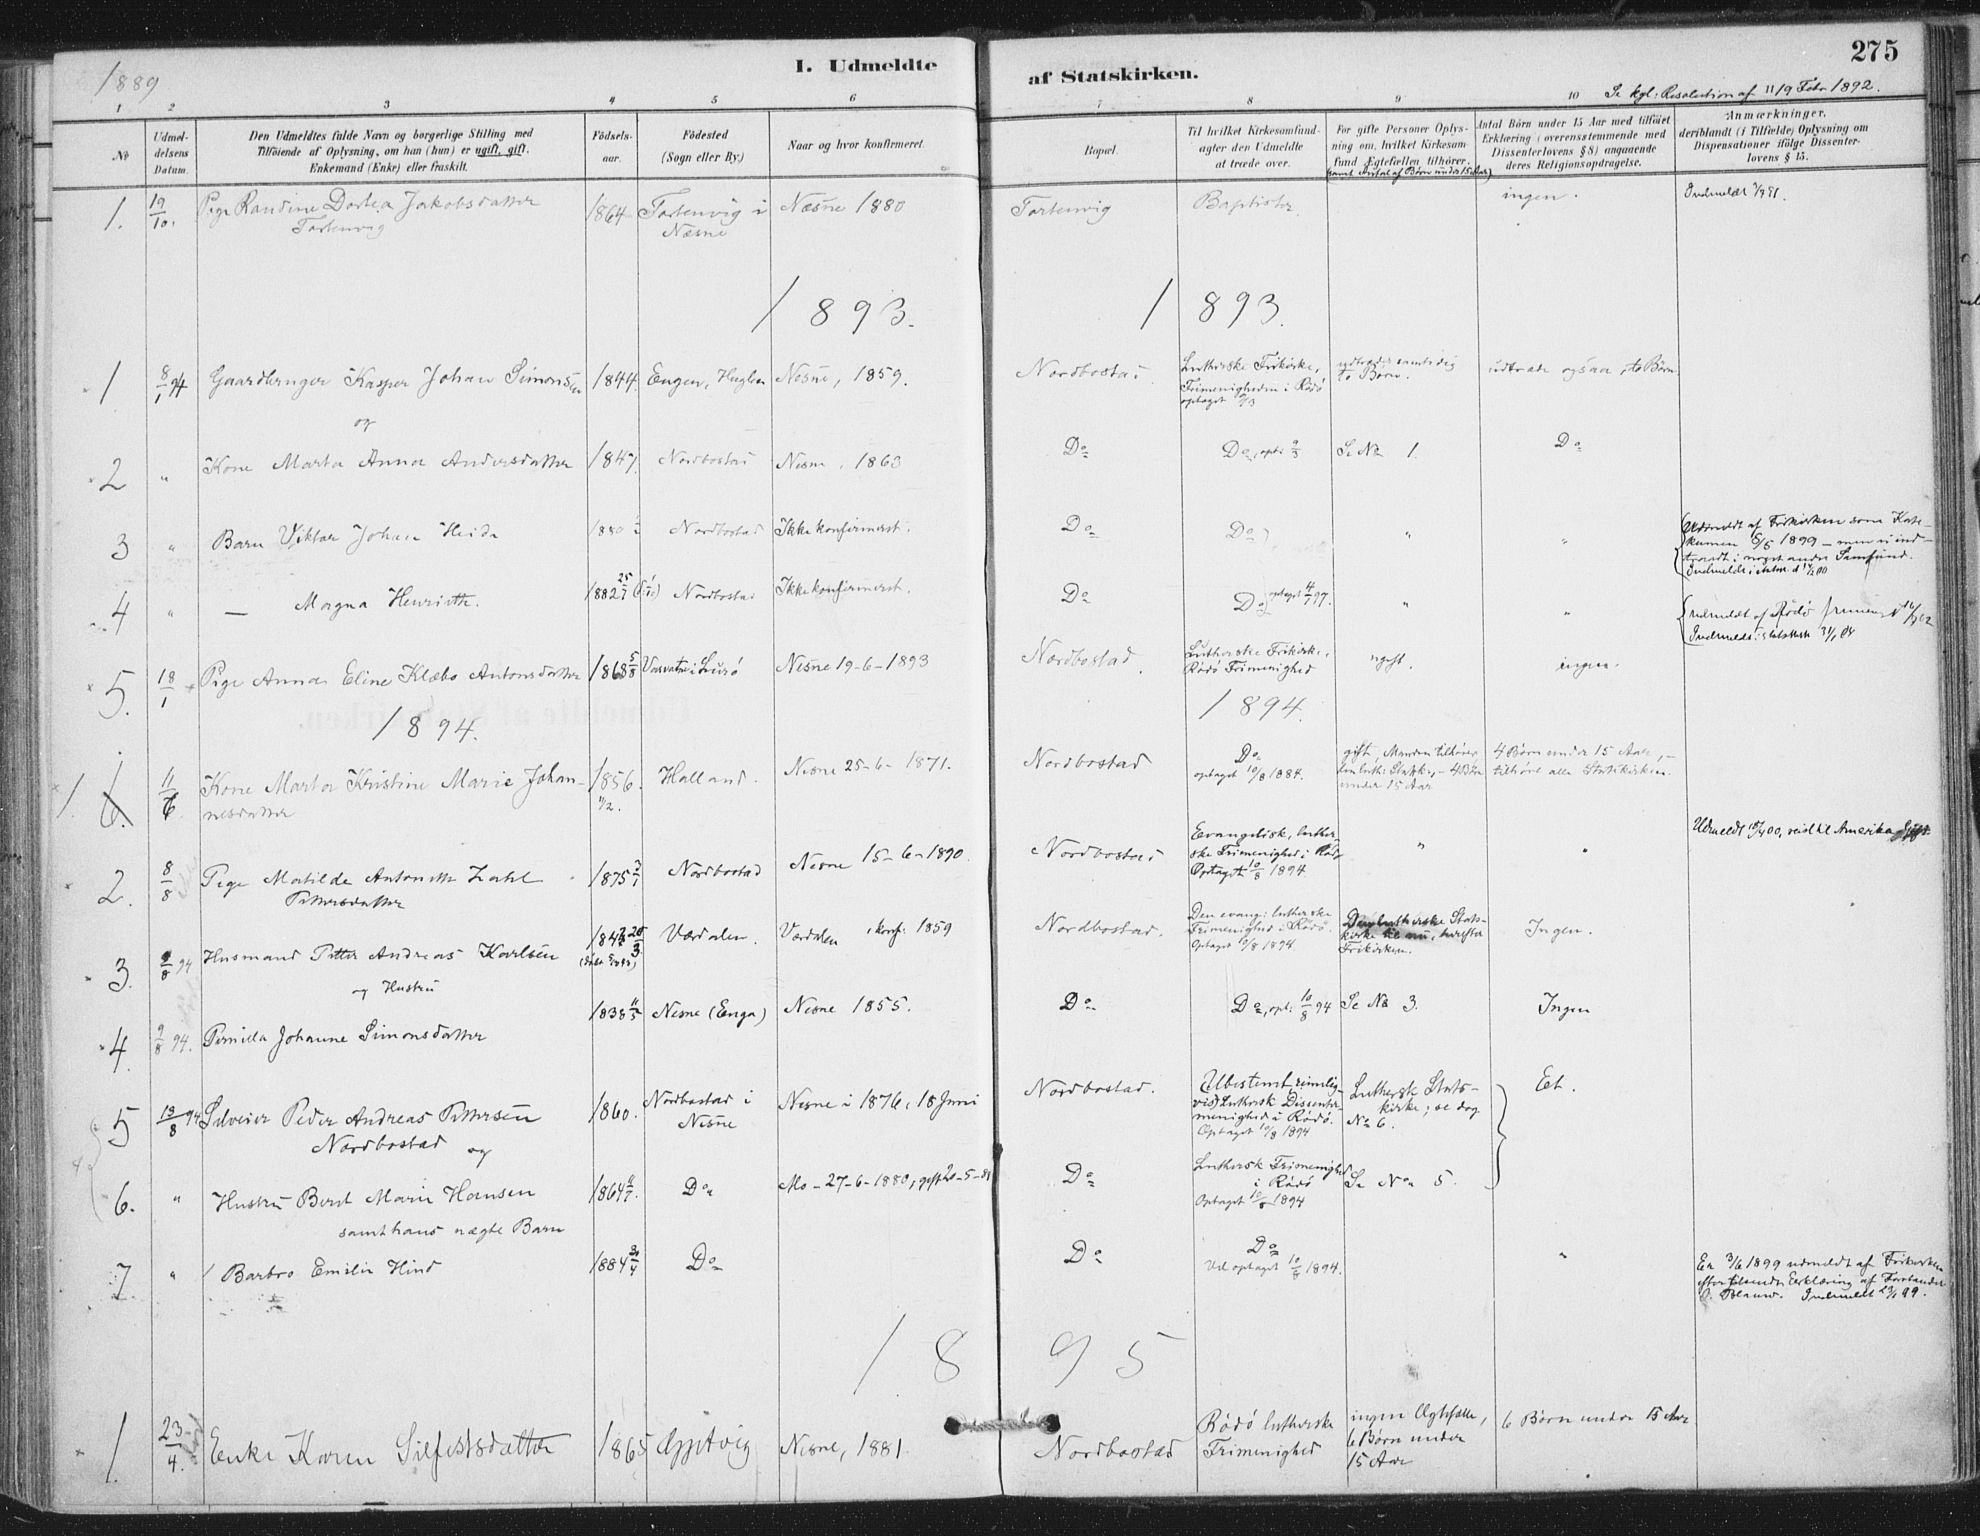 275
I. Udmeldte
af Statskirken.
1889
Se kgl: Resolution af 19 Febr 1892.
1 2 3 4 5 6 7 8 9 10
No
Udmel-
delsens
Datum.
Den Udmeldtes fulde Navn og borgerlige Stilling med
Tilföiende af Oplysning, om han (hun) er ugift, gift,
Enkemand (Enke) eller fraskilt.
Födsels-
aar.
Födested
(Sogn eller By.)
Naar og hvor konfirmeret.
Bopæl.
Til hvilket Kirkesamfund
agter den Udmeldte
at træde over.
For gifte Personer Oplys-
ning om, hvilket Kirkesam-
fund Ægtefællen tilhörer.
samt Antal af Börn under 15 Aar)
Antal Börn under 15 Aar med tilföiet
Erklæring (overensstemmende med
Dissenterlovens § 8) angaaende
deres Religionsopdragelse.
Anmærkninger,
deriblandt (i Tilfælde) Oplysning om
Dispensationer ifölge Dissenter-
lovens § 15.
1. 19/10. Pige Randine Dortea Jakobsdatter 1864 Tortenvig i Næsne 1880 Tortenvig Baptister ingen.
Tortenvig Næsne
1893. 1893.
1 8/1 94 Gaardbruger Kasper Johan Simonsen 1844. Engen, Huglen Nesne, 1859. Nordbostad Lutherske Frikirke, udtræder samtidig udtræde ogsaa, to Børn
to Børn.
Frimenigheden i Rödö
optaget
og
2 " Kone Marta Anna Andersdatter 1847. Nordbostad Nesne, 1863 Do Do, opt: Se No 1. Do
3 " Barn Viktor Johan Heide 1880 Nordbostad Ikke konfirmeret. Do Do " "
Udmeldt af Frikirken som Kate-
kumen 5/5 1899 – men ei ind-
traadt i noget andet Samfund.
4 " — Magna Henriette. 1882 25/7 Nordbostad Ikke konfirmeret. Do Do optaget 4/7 97. " "
udmeldt af Rödö
5. 18/1 Pige Anna Eline Klæbo Antonsdatter 1868 5/8 i Lurö Nesne 19-6-1893 Nordbostad Lutherske Frikirke, ugift. ingen.
Rödö Frimenighed
1894. 1894.
1. 6. 11/6 Kone Marta Kristine Marie Johan- 1856. Halland. Nesne 25-6-1871. Nordbostad Do gift, Manden tilhører 4 Børn under 15 Aar,
nesdatter 11/2. optaget 10/8 1884. den luth: Statsk:, – 4 Børn tilhöre alle Statskirken.
under 15 Aar
2. 8/8 Pige Matilde Antonette Zahl 1875 2/1 Nordbostad Nesne 15-6-1890. Nordbostad Evangelisk, luther- " "
Pettersdatter
ske Frimenighed i Rödö
Optaget 10/8 1894.
Udmeldt 18/4 00, reist til Amerika
3. 9/8 94 Husmand Petter Andreas Karlsen Værdalen. Værdalen, konf: 1859 Nordbostad. Den evang: lutherske Den lutherske Stats- Ingen.
Frimenighed i Rödö. kirke til nu, herefter
Optaget 10/8 1894. Frikirken.
og Hustru
4. 9/8 94. Pernilla Johanne Simonsdatter 1838 11/5 Nesne (Enga) Nesne 1855. Do Do, opt: 10/8 94 Se No 3. Ingen
5 13/8 94 Selveier Peder Andreas Pettersen 1860. Nordbostad i Nesne i 1876, 18 Juni Nordbostad. Ubestemt, rimelig- Luthersk Stats- Et.
Nordbostad og Nesne vis) Luthersk Dissenter- kirke; se dog
menighed i Rödö. No 6.
Optaget 10/8 1894
6. " Hustru Berit Marie Hansen 1864 Do Mo – 27-6-1880, gift 20-5- Do Luthersk Frimenighed Se No 5.
i Rödö
Optaget 10/8 1894
samt hans uægte Barn
7. " Barbro Emilie Hind 1884 Do Do Do "
Ud optaget 10/8 1894.
Er 3/6 1899 udmeldt af Frikirken
efter Erklæring af Forstander
1895
1. 23/4. Enke Karen Silfestsdatter 1865 Nesne, 1881. Nordbostad Rödö lutherske ingen Ægtefælle, 6 Børn under 15 Aar
Frimenighed 6 Børn under
15 Aar